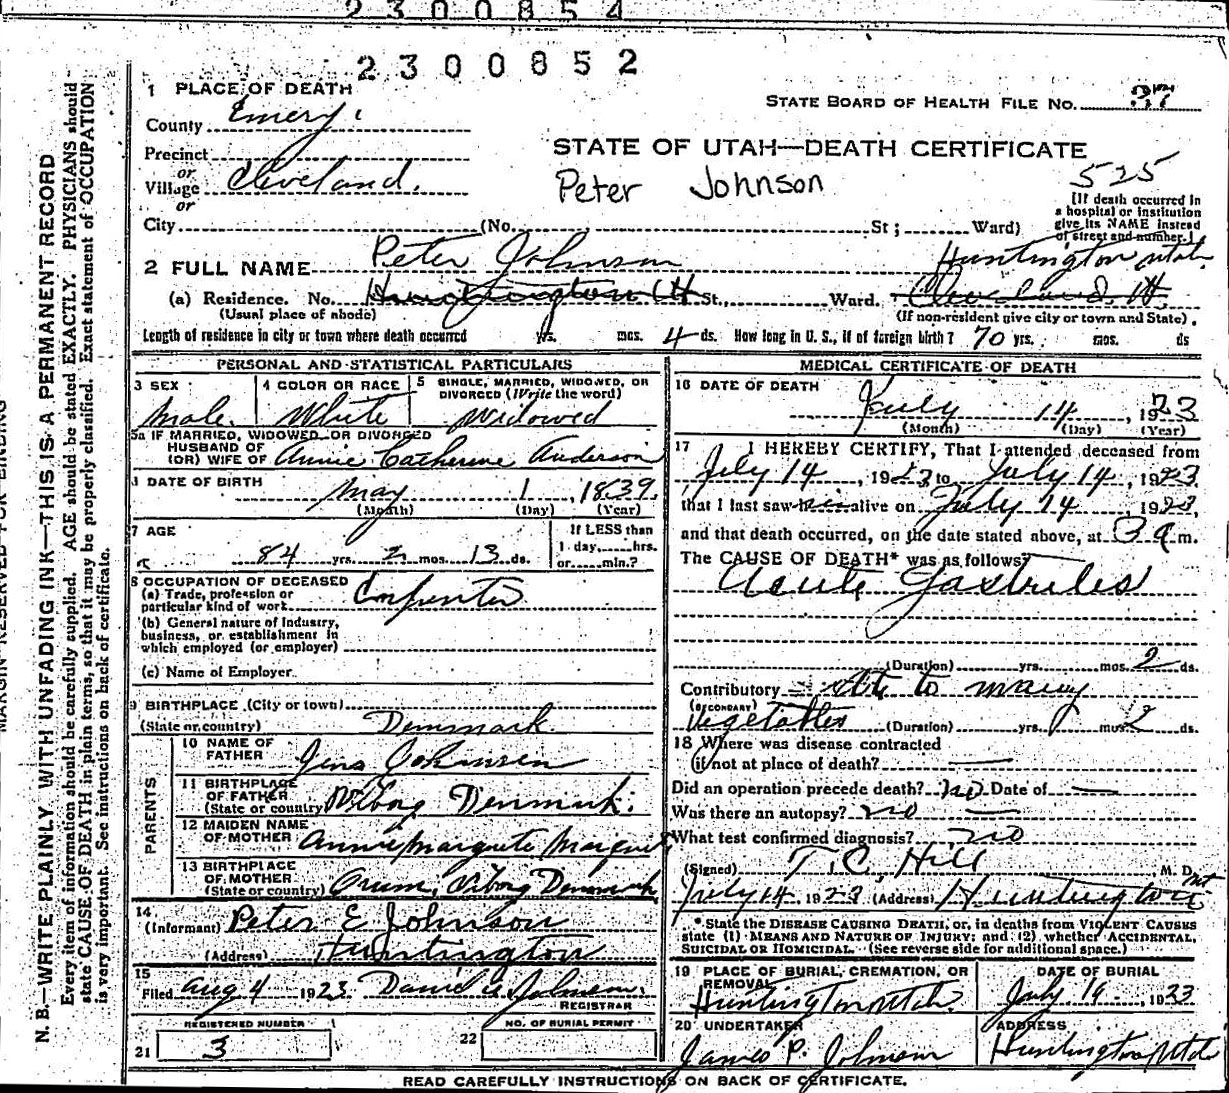 2 3 0 0 8 5 4
2 3 0 0 8 5 2
1 PLACE OF DEATH
STATE BOARD OF HEALTH FILE NO. 37
County Emery
STATE OF UTAH—DEATH CERTIFICATE
Precinct
or
Village Cleveland.
or
Peter Johnson
525
[If death occurred in
a hospital or institution
give its NAME instead
of street and number.]
City (No. St; Ward)
2 FULL NAME Peter Johnson Huntington Utah
(a) Residence. No. Huntington Ut St., Ward. Cleveland. Ut.
(Usual place of abode) (If non-resident give city or town and State).
Length of residence in city or town where death occurred yrs. mos. 4 ds. How long in U. S., if of foreign birth? 70 yrs. mos. ds
PERSONAL AND STATISTICAL PARTICULARS
3 SEX 4 COLOR OR RACE 5 SINGLE, MARRIED, WIDOWED, OR
DIVORCED (Write the word)
Male. White Widowed
5a IF MARRIED, WIDOWED OR DIVORCED
HUSBAND OF
(OR) WIFE OF Annie Catherine Anderson
DATE OF BIRTH May 1, 1839.
(Month) (Day) (Year)
7 AGE If LESS than
84 yrs. 2 mos. 13 ds. 1 day,......hrs.
or......min.?
8 OCCUPATION OF DECEASED
(a) Trade, profession or
particular kind of work Carpenter
(b) General nature of Industry,
business, or establishment in
which employed (or employer)
(c) Name of Employer
9 BIRTHPLACE (City or town)
(State or country) Denmark
PARENTS
10 NAME OF
FATHER Jens Johnsen
11 BIRTHPLACE
OF FATHER
(State or country) Viborg Denmark.
12 MAIDEN NAME
OF MOTHER Annie Margrete
13 BIRTHPLACE
OF MOTHER
(State or country) Viborg Denmark
14
(Informant) Peter E Johnson
(Address) Huntington
15
Filed Aug 4 1923 Johnson.
REGISTRAR
REGISTERED NUMBER NO. OF BURIAL PERMIT
21 3 22
MEDICAL CERTIFICATE OF DEATH
16 DATE OF DEATH
July 14, 1923
(Month) (Day) (Year)
17 I HEREBY CERTIFY, That I attended deceased from
July 14, 1923 to July 14, 1923
that I last saw alive on July 14, 1923,
and that death occurred, on the date stated above, at 3 a m.
The CAUSE OF DEATH* was as follows:
Acute Gastrites
(Duration) yrs. mos. 2 ds.
Contributory ate to many
(SECONDARY)
Vegetables (Duration) yrs. mos. 2 ds.
18 Where was disease contracted
(if not at place of death?
Did an operation precede death? no Date of —
Was there an autopsy? no
What test confirmed diagnosis? no
(Signed) T. C. Hill M. D.
July 14 1923 (Address) Huntington Ut
* State the DISEASE CAUSING DEATH, or, in deaths from VIOLENT CAUSES
state (1) MEANS AND NATURE OF INJURY; and (2) whether ACCIDENTAL,
SUICIDAL OR HOMICIDAL. (See reverse side for additional space.)
19 PLACE OF BURIAL, CREMATION, OR
REMOVAL
DATE OF BURIAL
Huntington Utah. July 19, 1923
20 UNDERTAKER ADDRESS
James P. Johnson Huntington Utah
READ CAREFULLY INSTRUCTIONS ON BACK OF CERTIFICATE.
MARGIN RESERVED FOR BINDING
N. B.—WRITE PLAINLY WITH UNFADING INK—THIS IS A PERMANENT RECORD
Every item of information should be carefully supplied. AGE should be stated EXACTLY. PHYSICIANS should
state CAUSE OF DEATH in plain terms, so that it may be properly classified. Exact statement of OCCUPATION
is very important. See instructions on back of certificate.